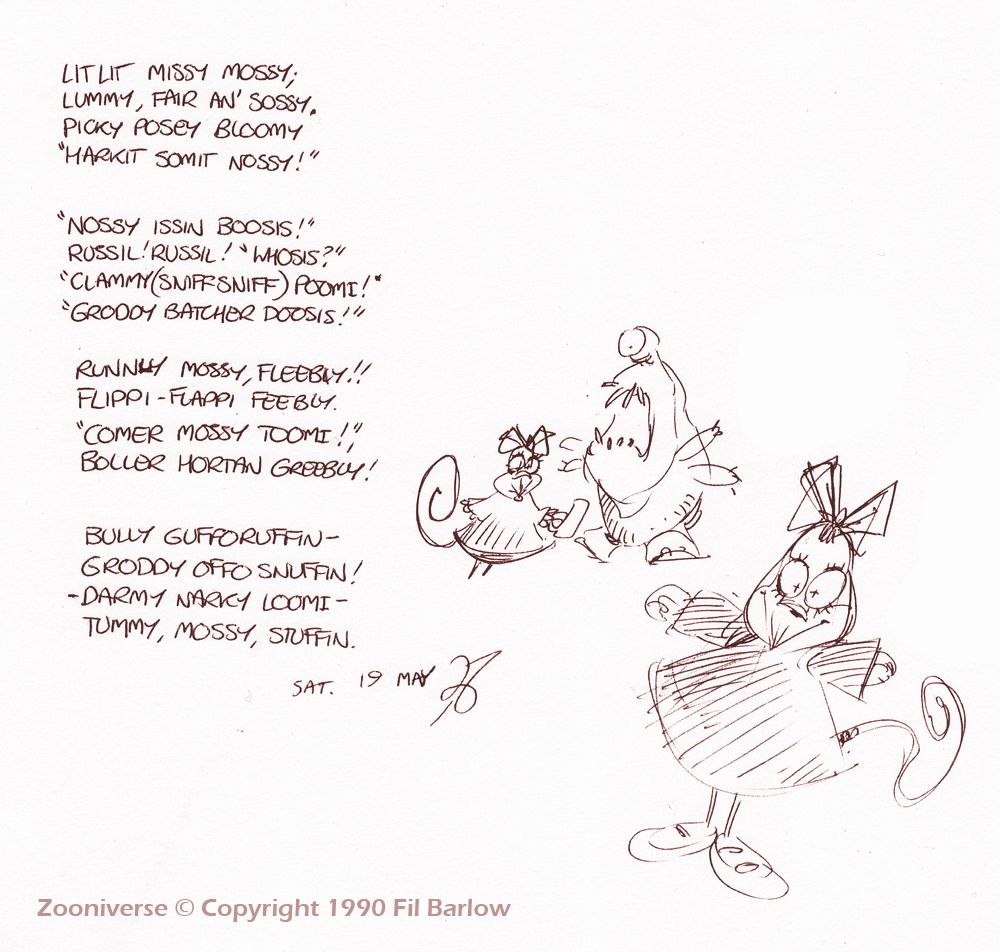 LIT LIT MISSY MOSSY;
LUMMY, FAIR AN' SOSSY.
PICKY POSEY BLOOMY
"HARKIT SOMIT NOSSY!"
"NOSSY ISSIN BOOSIS!"
RUSSIL! RUSSIL! "WHOSIS?"
"CLAMMY (SNIFFSNIFF) POOMI!"
"GRODDY BATCHER DOOSIS!"
RUNNLY MOSSY, FLEEBLY!!
FLIPPI-FLAPPI FEEBLY.
"COMER MOSSY TOOMI!",
BOLLER HORTAN GREEBLY!
BULLY GUFFORUFFIN-
GRODDY OFFO SNUFFIN!
-DARMY NARKY LOOMI-
TUMMY, MOSSY, STUFFIN.
SAT. 19 MAY
Zooniverse © Copyright 1990 Fil Barlow